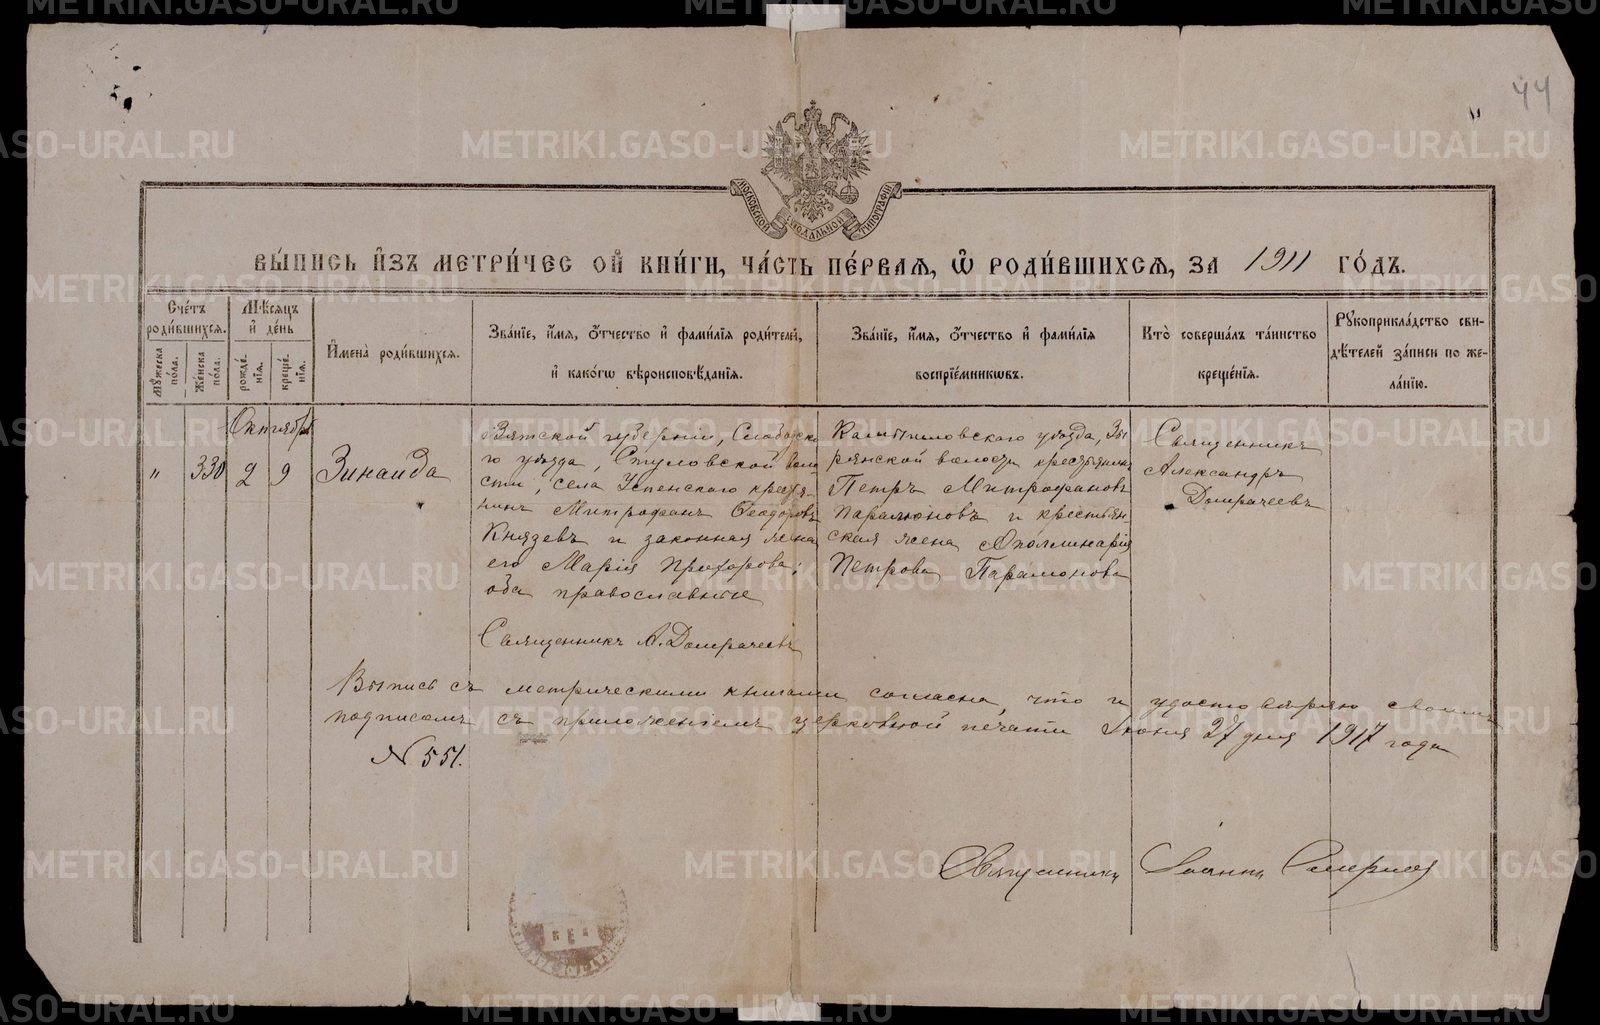 44
МОСКОВСКОЙ СѴНОДАЛЬНОЙ ТИПОГРАФІИ
ВЫ́ПИСЬ И҆ЗЪ МЕТРИ́ЧЕС ОЙ КНИ́ГИ, ЧА́СТЬ ПЕ́РВАѦ, Ѡ҆ РОДИ́ВШИХСѦ, ЗА 1911 ГО́ДЪ.
Сче́тъ роди́вшихсѧ.
Мꙋжеска по́ла.
Же́нска по́ла.
Мѣ́сѧцъ и҆ де́нь
рожде́нїѧ.
креще́нїѧ.
И҆мена̀ роди́вшихсѧ.
Зва́нїе, и҆́мѧ, ѻ҆́тчество и҆ фами́лїѧ роди́телей,
и҆ како́гѡ вѣроисповѣ́данїѧ.
Зва́нїе, и҆́мѧ, ѻ҆́тчество и҆ фами́лїѧ
воспрїе́мникѡвъ.
Кто̀ соверша́лъ та́инство
креще́нїѧ.
Рꙋкоприкла́дство сви-
дѣ́телей за́писи по же-
ла́нїю.
Октябрь
"
330
2
9
Зинаида
Вятской губерніи, Слободска
го уѣзда, Стуловской воло
сти, села Успенскаго кресть
нинъ Митрофанъ Ѳеодоровъ
Князевъ и законная жена
его Марія Прохорова;
оба православные
Священникъ А. Домрачевъ
Камышловскаго уѣзда, Зы
рянской волости крестьянинъ
Петръ Митрофановъ
Парамоновъ и крестьян-
ская жена Аполлинарія
Петрова Парамонова
Священникъ
Александръ
Домрачевъ
Выпись съ метрическими книгами согласна, что и удостовѣряю своимъ
подписомъ съ приложеніемъ церковной печати Іюня 27 дня 1917 года
№ 551.
Священникъ Іоаннъ
METRIKI.GASO-URAL.RU